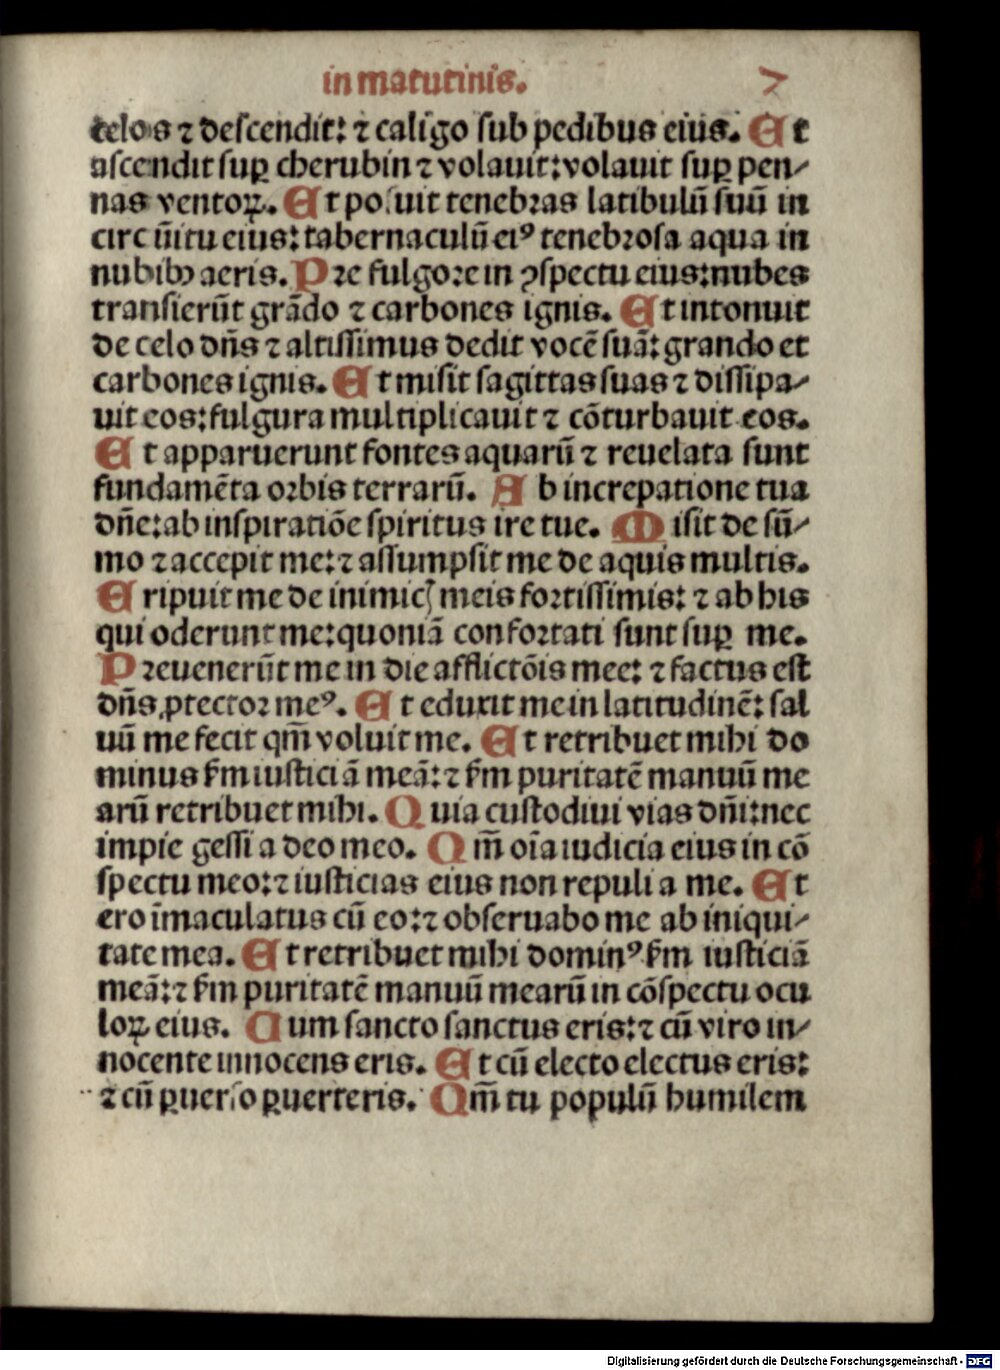 in matutinis. 7
celos ⁊ descendit: ⁊ caligo sub pedibus eius. Et
ascendit suꝑ cherubin ⁊ volauit: volauit suꝑ pen⸗
nas ventoꝝ. Et posuit tenebras latibulū suū in
circūitu eius: tabernaculū eiꝰ tenebrosa aqua in
nubibꝫ aeris. Pre fulgore in ꝯspectu eius: nubes
transierūt grādo ⁊ carbones ignis. Et intonuit
de celo dn̄s ⁊ altissimus dedit vocē suā: grando et
carbones ignis. Et misit sagittas suas ⁊ dissipa⸗
uit eos: fulgura multiplicauit ⁊ cōturbauit eos.
Et apparuerunt fontes aquarū ⁊ reuelata sunt
fundamēta orbis terrarū. Ab increpatione tua
dn̄e: ab inspiratiōe spiritus ire tue. Misit de sū⸗
mo ⁊ accepit me: ⁊ assumpsit me de aquis multis.
Eripuit me de inimicꝭ meis fortissimis: ⁊ ab his
qui oderunt me: quoniā confortati sunt suꝑ me.
Preuenerūt me in die afflictōis mee: ⁊ factus est
dn̄s ꝓtector meꝰ. Et eduxit me in latitudinē: sal
uū me fecit qm̄ voluit me. Et retribuet mihi do
minus ẜm iusticiā meā: ⁊ ẜm puritatē manuū me
arū retribuet mihi. Quia custodiui vias dn̄i: nec
impie gessi a deo meo. Qm̄ oīa iudicia eius in cō
spectu meo: ⁊ iusticias eius non repuli a me. Et
ero īmaculatus cū eo: ⁊ obseruabo me ab iniqui⸗
tate mea. Et retribuet mihi dominꝰ ẜm iusticiā
meā: ⁊ ẜm puritatē manuū mearū in cōspectu ocu
loꝝ eius. Cum sancto sanctus eris: ⁊ cū viro in⸗
nocente innocens eris. Et cū electo electus eris:
⁊ cū ꝑuerso ꝑuerteris. Qm̄ tu populū humilem
Digitalisierung gefördert durch die Deutsche Forschungsgemeinschaft - DFG